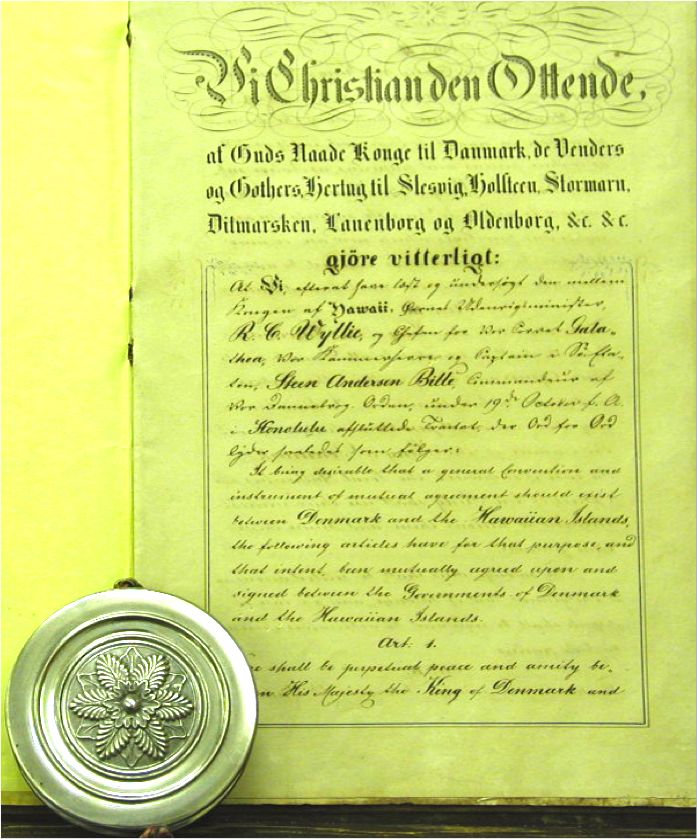 Vi Christian den Ottende,
af Guds Naade Konge til Danmark, de Venders
og Gothers, Hertug til Slesvig, Holsteen, Stormarn,
Ditmarsken, Lauenborg og Oldenborg, &c. &c.
gjöre vitterligt:
At Vi, efterat have læst og undersøgt den mellem
Kongen af Hawaii, Udenrigsminister,
R. C. Wyllie, og Chefen for Vor Corvet Gala-
thea, Vor Kammerherre og Captain i Søeta-
ten, Steen Andersen Bille, Commandeur af
Vor Dannebrog Orden, under 19de October f. A.
i Honolulu afsluttede Tractat, der Ord for Ord
lyder saaledes som følger:
It being desirable that a general Convention and
instrument of mutual agreement should exist
between Denmark and the Hawaiian Islands,
the following articles have for that purpose, and
that intent, been mutually agreed upon and
signed between the Governments of Denmark
and the Hawaiian Islands.
Art: 1.
shall be perpetual peace and amity be-
His Majesty the King of Denmark and